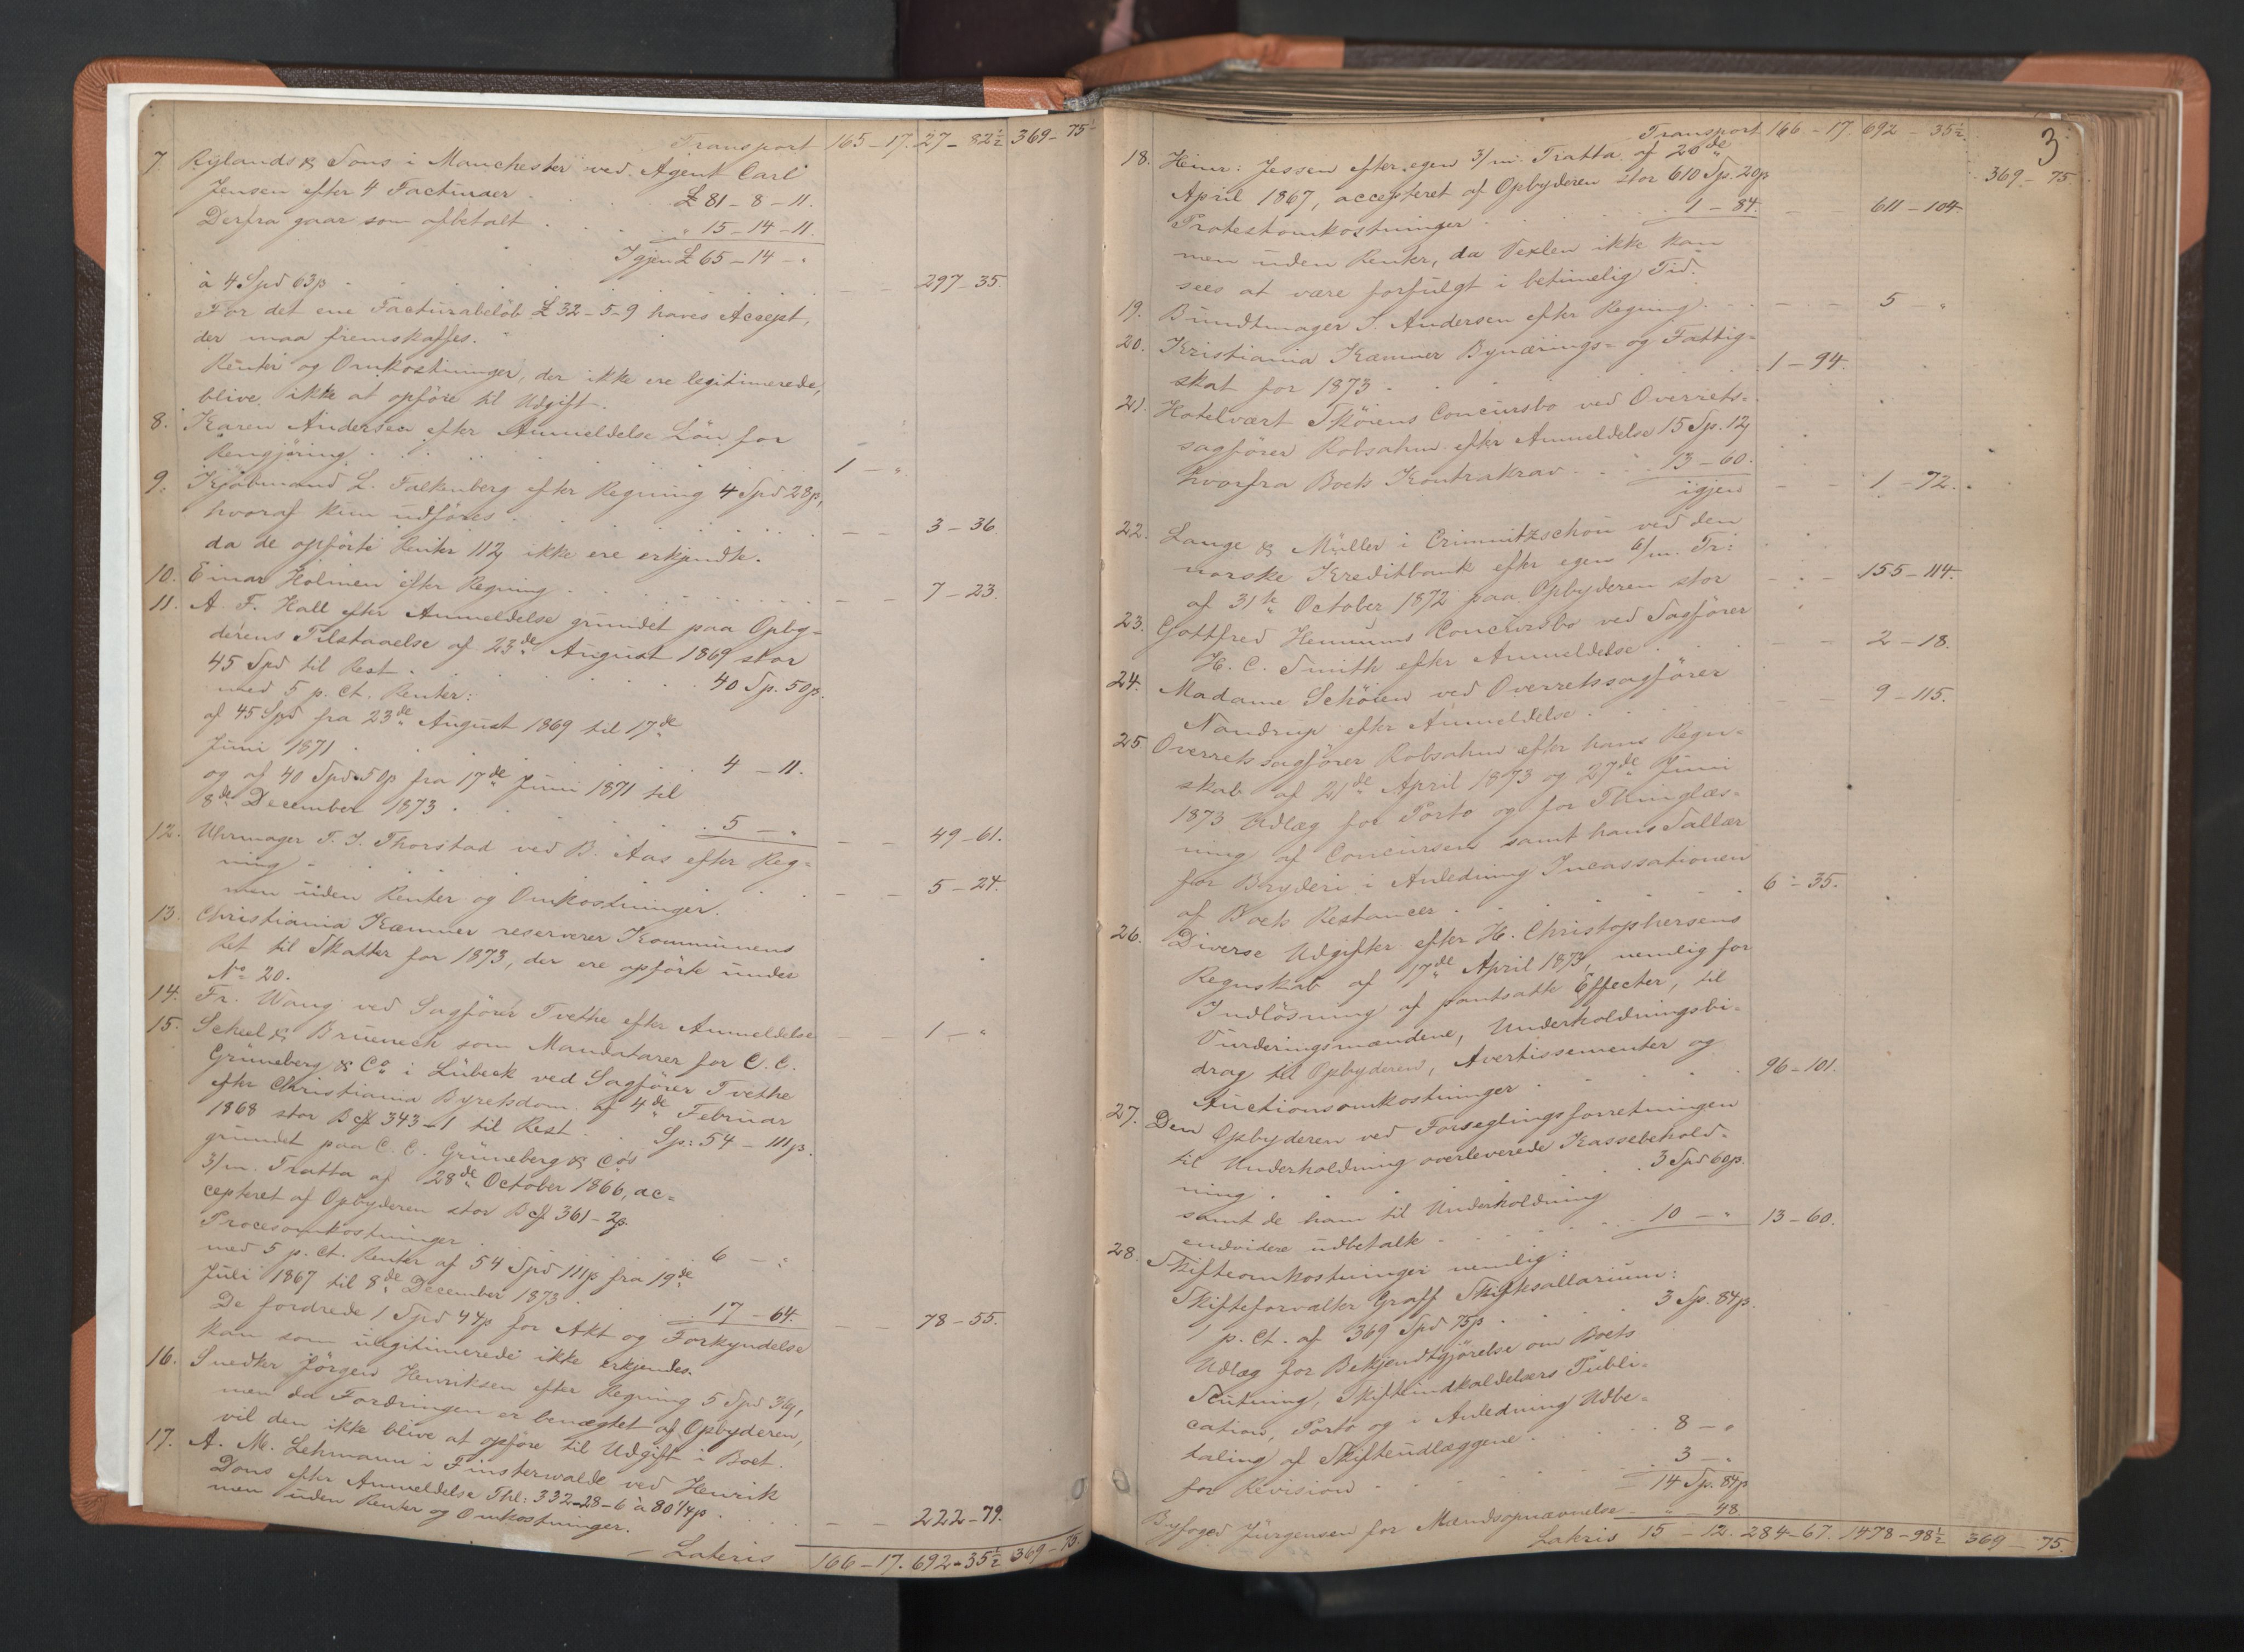 Transport 165–17. 27–82½ 369–75
7. Rylands & Sons i Manchester ved Agent Carl
Jensen efter 4 Facturaer . . £ 81–8–11.
Derfra gaar som afbetalt . . . „ 15–14–11.
Igjen £ 65–14–„
à 4 Spd 63ꞵ . . . – – 297–35.
For det ene Facturabeløb £ 32–5–9 haves Accept,
der maa fremskaffes.
Renter og Omkostninger, der ikke ere legitimerede,
blive ikke at opføre til Udgift.
8. Karen Andersen efter Anmeldelse Løn for
Rengjøring . . . . 1 – „
9. Kjøbmand L. Falkenberg efter Regning 4 Spd 28ꞵ,
hvoraf kun udføres . . . – – 3–36
da de opførte Renter 112ꞵ ikke ere erkjendte.
10. Einar Holmen efter Regning . . . – – 7–23.
11. A. F. Hall efter Anmeldelse grundet paa Opby=
derens Tilstaaelse af 23de August 1869 stor
45 Spd til Rest . . . 40 Sp. 50ꞵ.
med 5 p. Ct. Renter:
af 45 Spd fra 23de August 1869 til 17de
Juni 1871 . . . 4–11.
og af 40 Spd 50ꞵ fra 17de Juni 1871 til
8de December 1873 . . . 5 – „ – – 49–61.
12. Uhrmager T. J. Thorstad ved B. Aas efter Reg=
ning . . . – – 5–24.
men uden Renter og Omkostninger.
13. Christiania Kæmner reserverer Kommunens
Ret til Skatter for 1873, der ere opførte under
No 20.
14. Fr. Wang ved Sagfører Tvethe efter Anmeldelse – – 1 – „
15. Scheel & Bruenech som Mandatarer for C. C.
Grüneberg & Co i Lübeck ved Sagfører Tvethe
efter Christiania Byretsdom af 4de Februar
1868 stor Bcꝭ 343–1 til Rest . . Sp: 54–111ꞵ.
grundet paa C. C. Grüneberg & Co's
3/m. Tratta af 28de October 1866, ac=
cepteret af Opbyderen stor Bcꝭ 361–2ꞵ.
Procesomkostninger . . . 6 – „
med 5 p. Ct. Renter af 54 Spd 111ꞵ fra 19de
Juli 1867 til 8de December 1873 . . 17–64. – – 78–55.
De fordrede 1 Spd 44ꞵ for Akt og Forkyndelse
kan som ulegitimerede ikke erkjendes.
16. Snedker Jørgen Henriksen efter Regning 5 Spd 36ꞵ,
men da Fordringen er benægtet af Opbyderen,
vil den ikke blive at opføre til Udgift i Boet.
17. A. M. Lehmann i Finsterwalde ved Henrik
Dons efter Anmeldelse Thl: 332–28–6 à 80¼ꞵ . . – – 222–79.
men uden Renter og Omkostninger.
Lateris 166–17. 692–35½ 369–75.
3
Transport 166–17. 692–35½. 369–75
18. Heinr: Jessen efter egen 3/m. Tratta af 20de
April 1867, accepteret af Opbyderen stor 610 Sp. 20ꞵ
Protestomkostninger . . . 1–84. – – 611–104
men uden Renter, da Vexlen ikke kan
sees at være forfulgt i betimelig Tid.
19. Bundtmager J. Andersen efter Regning . . – – 5 – „
20. Kristiania Kæmner Bynærings= og Fattig=
skat for 1873 . . . 1–94.
21. Hotelvært Skøiens Concursbo ved Overrets=
sagfører Robsahm efter Anmeldelse 15 Sp. 12ꞵ
hvorfra Boets Kontrakrav . . 13–60.
igjen – – 1–72.
22. Lange & Müller i Crimmitzschau ved den
norske Kreditbank efter egen 6/m. Tr:
af 31te October 1872 paa Opbyderen stor – – 155–114.
23. Gottfred Hemmums Concursbo ved Sagfører
H. C. Smith efter Anmeldelse . . – – 2–18.
24. Madame Schøien ved Overretssagfører
Nandrup efter Anmeldelse . . – – 9–115.
25. Overretssagfører Robsahm efter hans Regn=
skab af 21de April 1873 og 27de Juni
1873 Udlæg for Porto og for Thinglæs=
ning af Concursen samt hans Sallær
for Bryderi i Anledning Incassationen
af Boets Restancer . . . 6–35.
26. Diverse Udgifter efter H. Christophersens
Regnskab af 17de April 1873, nemlig for
Indløsning af pantsatte Effecter, til
Vurderingsmændene, Underholdningsbi=
drag til Opbyderen, Avertissementer og
Auctionsomkostninger . . . 96–101.
27. Den Opbyderen ved Forseglingsforretningen
til Underholdning overleverede Kassebehold=
ning . . . 3 Spd 60ꞵ.
samt de ham til Underholdning
endvidere udbetalte . . . 10 – „ 13–60.
28. Skifteomkostninger nemlig:
Skifteforvalter Graff Skiftesallarium:
1 p. Ct. af 369 Spd 75ꞵ . . 3 Sp. 84ꞵ.
Udlæg for Bekjendtgjørelse om Boets
Slutning, Skifteindkaldelsers Publi=
cation, Porto og i Anledning Udbe=
taling af Skifteudlæggene . . . 8 – „
for Revision . . . 3 – „
14 Sp. 84ꞵ
Byfoged Jürgensen for Mændsopnævnelse „ 48
Lateris 15–12. 284–67. 1478–98½ 369–75.